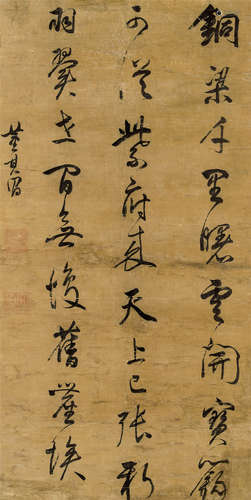 銅梁千里曙雲開寶籙
從紫府來天上已張新
羽翼世間無復舊塵埃
董其昌